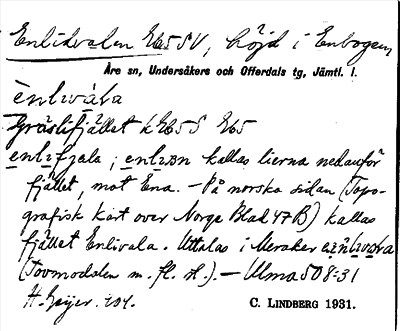 Enlidvalen E65SV, höjd i Enbogen
Åre sn, Undersåkers och Offerdals tg, Jämtl. l.
ènlıvála
Gräslifjället k E65S E65
enlıfjæla, enlıɜn kallas lierna nedanför
fjället, mot Ena. – På norska sidan (Topo-
grafisk kart over Norge Blad 47B) kallas
fjället Enlivala. Uttalas i Meraker
(Tovmodalen m. fl. st.). – Ulma 508:31
H. Geijer.
C. LINDBERG 1931.